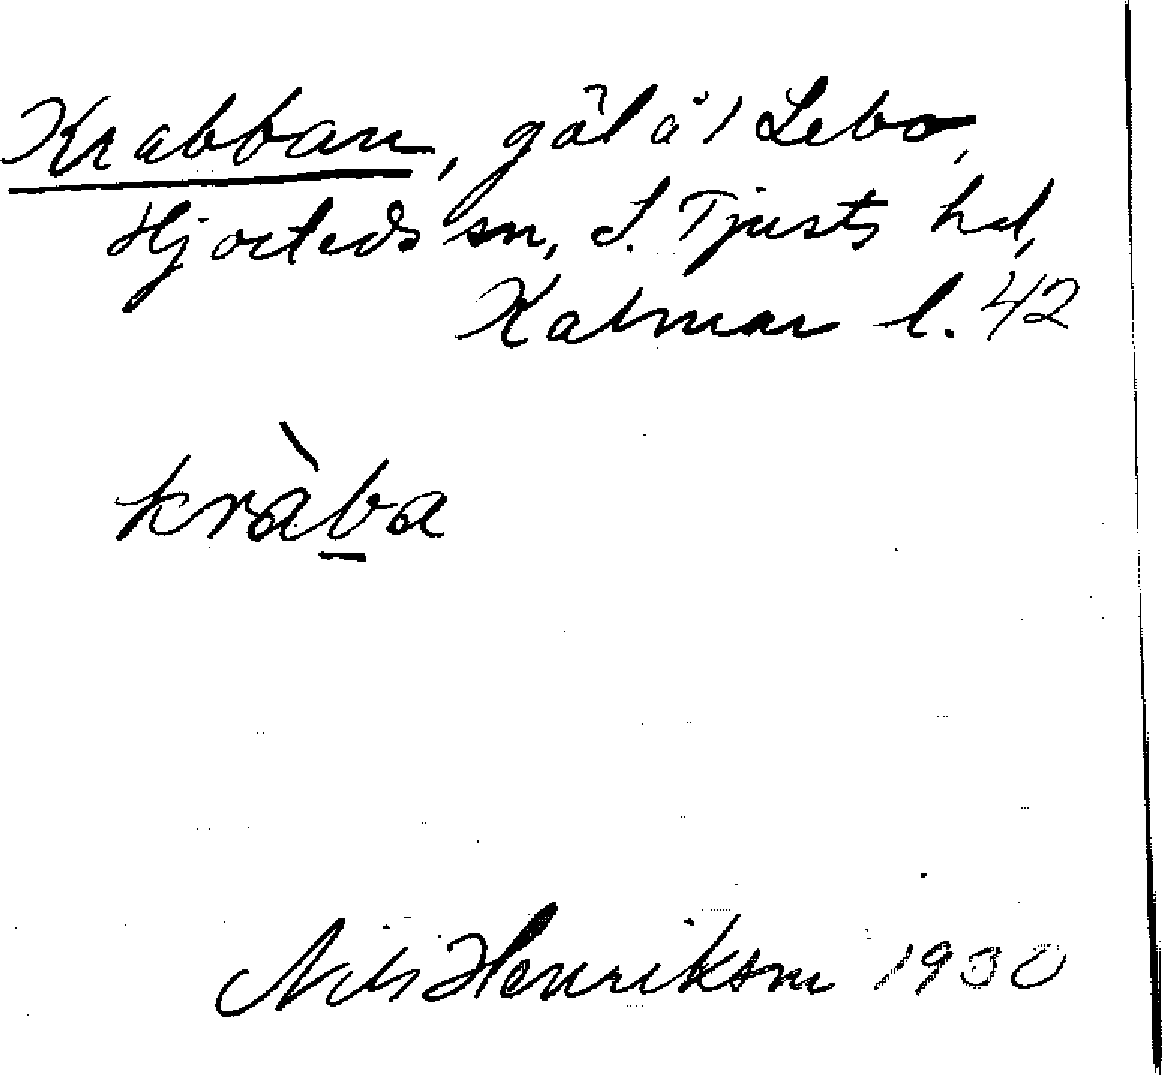 Krabban, gål å 1 Lebo,
Hjorteds sn, S. Tjusts hd,
Kalmar l. 42
kràba
Nils Henriksson 1930